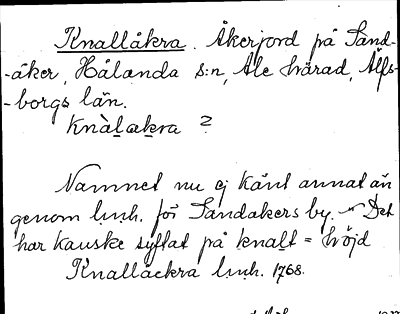 Knallåkra. Åkerjord på Sand-
-åker, Hålanda s:n, Ale härad, Älfs-
-borgs län.
Knàl̯ak̯ra ?
Namnet nu ej känt annat än
genom l̯ṇh. för Sandåkers by. Det
har kanske syftat på knal̯t = höjd
Knallåckra l̯ṇh. 1768.